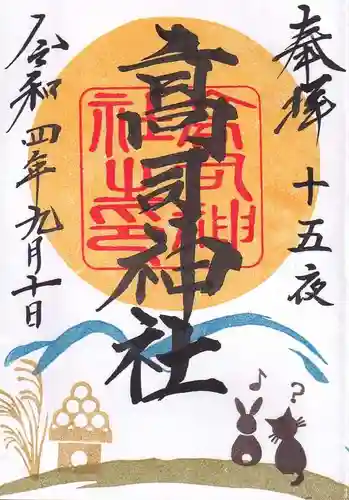 奉拝
十五夜
高司神社
令和四年九月十日
♪
?